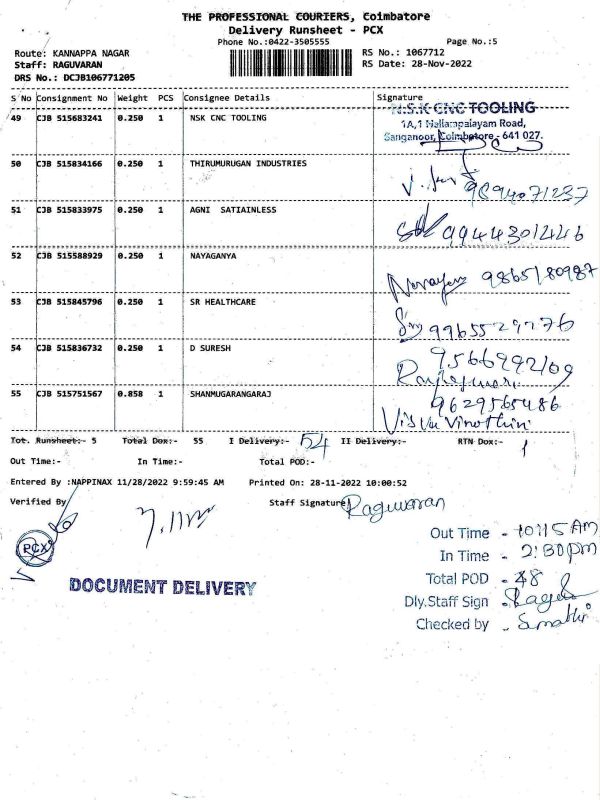 THE PROFESSIONAL COURIERS, Coimbatore
Delivery Runsheet - PCX
Phone No.:0422-3505555
Page No.:5
Route: KANNAPPA NAGAR
RS No.: 1067712
Staff: RAGUVARAN
RS Date: 28-Nov-2022
DRS No.: DCJB106771205
S No Consignment No Weight PCS Consignee Details Signature
49 CJB 515683241 0.250 1 NSK CNC TOOLING
N.S.K CNC TOOLING
1A,1 Nallampalayam Road,
Sanganoor, Coimbatore - 641 027.
50 CJB 515834166 0.250 1 THIRUMURUGAN INDUSTRIES
9894071237
51 CJB 515833975 0.250 1 AGNI SATIAINLESS
9944301446
52 CJB 515588929 0.250 1 NAYAGANYA
9865180987
53 CJB 515845796 0.250 1 SR HEALTHCARE
9965529776
54 CJB 515836732 0.250 1 D SURESH
9566992109
55 CJB 515751567 0.858 1 SHANMUGARANGARAJ
9629565486
Tot. Runsheet:- 5 Total Dox:- 55 I Delivery:- 54 II Delivery:- RTN Dox:- 1
Out Time:- In Time:- Total POD:-
Entered By :NAPPINAX 11/28/2022 9:59:45 AM Printed On: 28-11-2022 10:00:52
Verified By Staff Signature Raguvaran
PCX
Out Time - 10:15 AM
In Time - 2:30pm
Total POD - 48
DOCUMENT DELIVERY
Dly.Staff Sign -
Checked by -